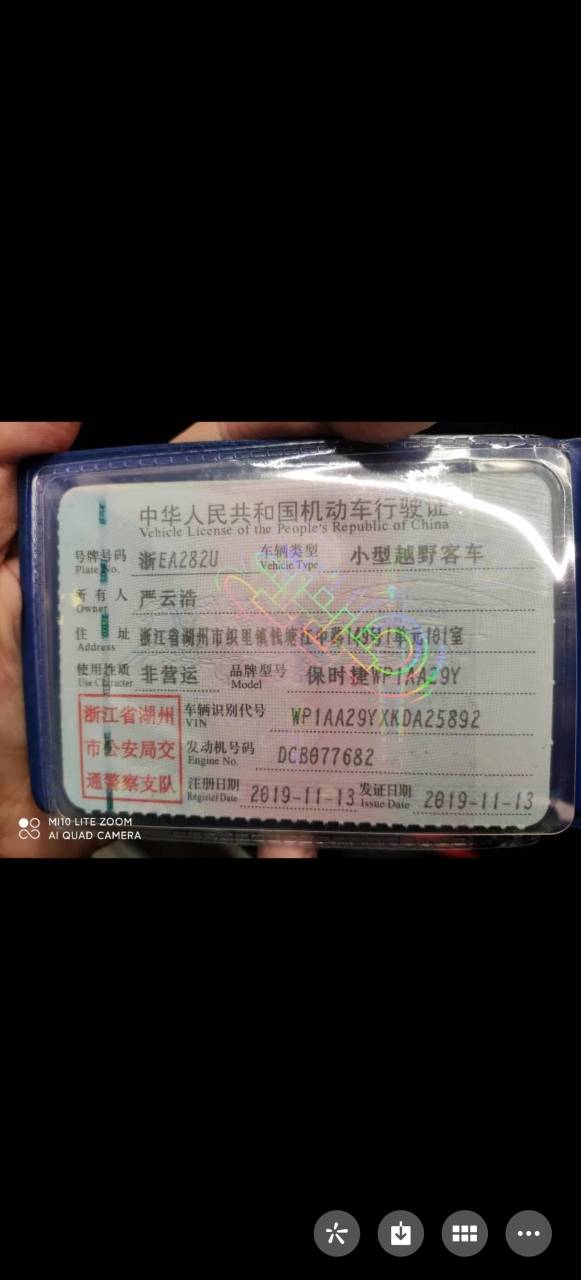 中华人民共和国机动车行驶证
Vehicle License of the People's Republic of China
号牌号码 浙EA282U 车辆类型 小型越野客车
Plate No. Vehicle Type
所有人 严云浩
Owner
住址 浙江省湖州市织里镇钱塘江中路149号1单元101室
Address
使用性质 非营运 品牌型号 保时捷WP1AA29Y
Use Character Model
浙江省湖州 车辆识别代号 WP1AA29YXKDA25892
VIN
市公安局交 发动机号码 DCB077682
Engine No.
通警察支队 注册日期 2019-11-13 发证日期 2019-11-13
Register Date Issue Date
MI 10 LITE ZOOM
AI QUAD CAMERA